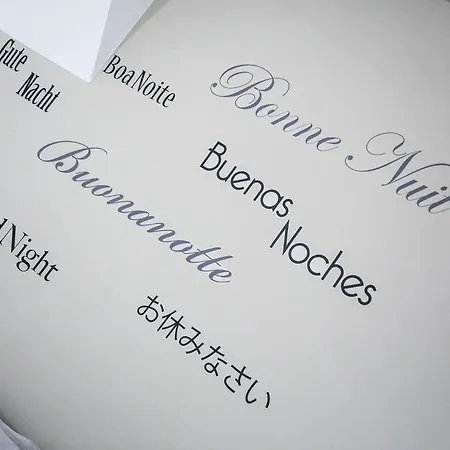 Gute
Nacht
BoaNoite
Bonne Nuit
Buenas
Noches
Buonanotte
Night
お休みなさい